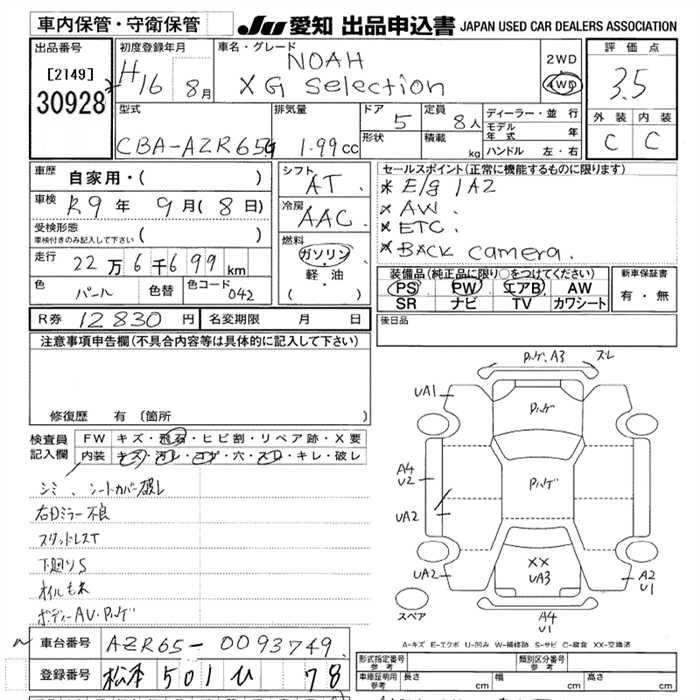 車内保管・守衛保管 JU 愛知 出品申込書 JAPAN USED CAR DEALERS ASSOCIATION
出品番号 初度登録年月 車名・グレード 評価点
[2149] H16 8月 NOAH 2WD
30928 X G Selection 4WD 3.5
型式 排気量 ドア 定員 ディーラー・並行 外装 内装
CBA-AZR65G 1.99cc 5 8人 モデル年式 年 C C
形状 積載 kg ハンドル 左・右
車歴 自家用・( ) シフト AT セールスポイント(正常に機能するものに限ります)
車検 R9年 9月(8日) 冷房 AAC * E/g 1AZ
* AW.
受検形態 車検付きのみ記入して下さい ( ) * ETC.
走行 22万6千699km 燃料 ガソリン・軽・油 ( ) * BACK camera.
色 パール 色替 色コード 042 装備品(純正品に限り○をつけてください) 新車保証書
PS PW エアB AW 有・無
SR ナビ TV カワシート
R券 12830円 名変期限 月 日 後日品
注意事項申告欄(不具合内容等は具体的に記入して下さい)
修復歴 有 (箇所 )
検査員記入欄 FW キズ・飛石・ヒビ割・リペア跡・X要
内装 キズ・汚レ・コゲ・穴・スレ・キレ・破レ
シミ、シートカバー破レ
右Dミラー不良
スタッドレスT
下廻りS
オイルもれ
ボディーAU・ハゲ
ハゲ、A3 スレ
UA1
ハゲ
A4
U2
ハゲ
UA2
XX
UA3
UA2
A2
U1
スペア
A4
U1
A-キズ E-エクボ U-凹み W-補修跡 S-サビ C-腐食 XX-交換済
車台番号 AZR65-0093749
登録番号 松本 501 ひ 78
形式指定番号 参考 類別区分番号 参考
車庫証明用 参考 長さ cm 幅 cm 高さ cm